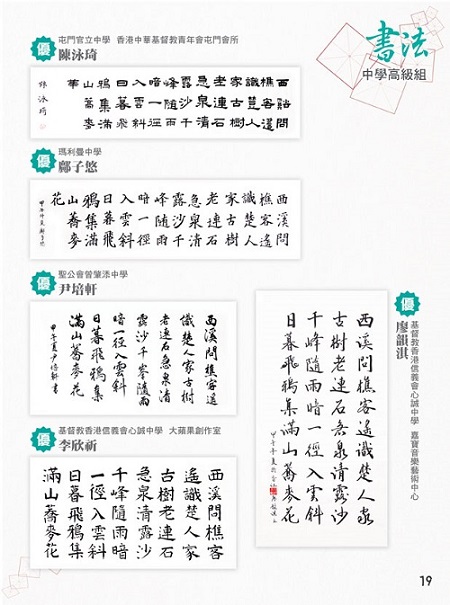 書法
中學高級組
優
屯門官立中學 香港中華基督教青年會屯門會所
陳泳琦
西谿問
樵客遙
識楚人
家古樹
老連石
急泉清
露沙千
峰隨雨
暗一徑
入雲斜
日暮飛
鴉集滿
山蕎麥
花
陳泳琦
優
瑪利曼中學
鄺子悠
西溪問
樵客遙
識楚人
家古樹
老連石
急泉清
露沙千
峰隨雨
暗一徑
入雲斜
日暮飛
鴉集滿
山蕎麥
花
優
聖公會曾肇添中學
尹培軒
西溪問樵客遙
識楚人家古樹
老連石急泉清
露沙千峯隨雨
暗一徑入雲斜
日暮飛鴉集
滿山蕎麥花
甲辰夏尹培軒書
優
基督教香港信義會心誠中學 大蘋果創作室
李欣祈
西溪問樵客
遙識楚人家
古樹老連石
急泉清露沙
千峰隨雨暗
一徑入雲斜
日暮飛鴉集
滿山蕎麥花
優
基督教香港信義會心誠中學 嘉寶音樂藝術中心
廖韻淇
西溪問樵客遙識楚人家
古樹老連石急泉清露沙
千峰隨雨暗一徑入雲斜
日暮飛鴉集滿山蕎麥花
19